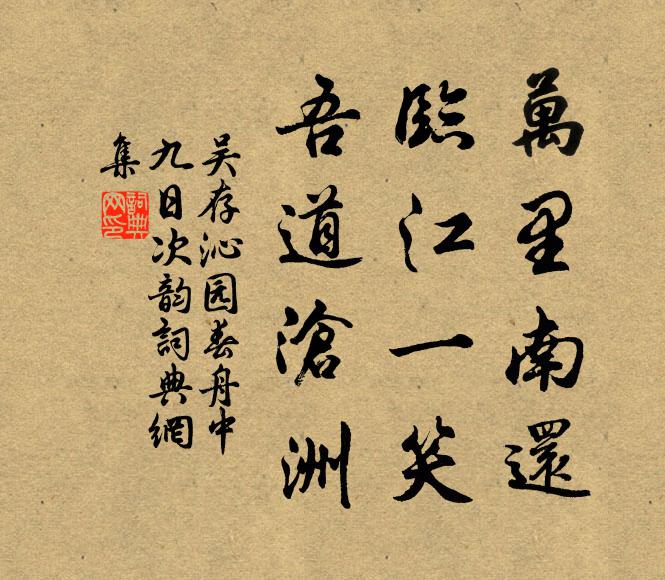 萬里南還
臨江一笑
吾道滄洲
吴存沁园春舟中
九日次韵詞典網
集
詞典
网印